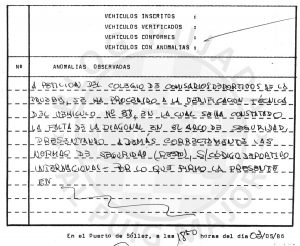 VEHICULOS INSCRITOS :
VEHICULOS VERIFICADOS :
VEHICULOS CONFORMES :
VEHICULOS CON ANOMALIAS :
Nº ANOMALIAS OBSERVADAS
A PETICION DEL COLEGIO DE COMISARIOS DEPORTIVOS DE LA
PRUEBA, SE HA PROCEDIDO A LA VERIFICACION TECNICA
DEL VEHICULO Nº 27, EN LA CUAL SE HA CONSTATADO
LA FALTA DE LA DIAGONAL EN EL ARCO DE SEGURIDAD,
PRESENTANDO ADEMAS CORRECTAMENTE LAS
NORMAS DE SEGURIDAD S/CODIGO DEPORTIVO
INTERNACIONAL - POR LO QUE FIRMO LA PRESENTE
EN
En el Puerto de Sóller, a las horas del día 03/05/86